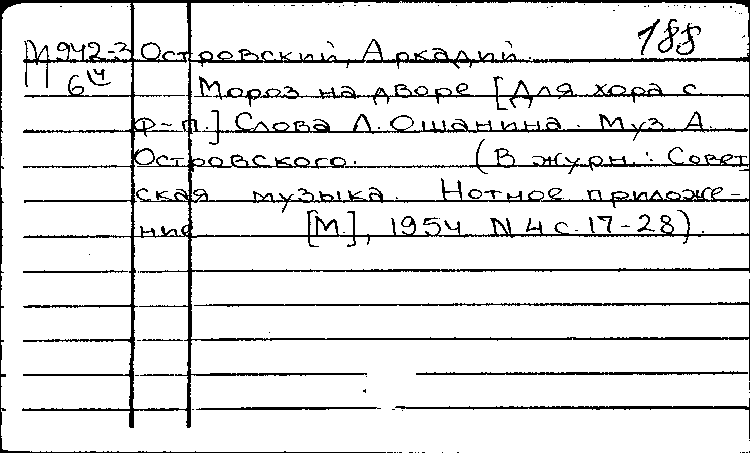 188
М 942-3 Островский, Аркадий.
6 Мороз на дворе [Для хора с
ф-п.] Слова Л. Ошанина. Муз. А.
Островского. (В журн.: Совет
ская музыка. Нотное приложе-
ние [М.], 1954 N 4 с. 17-28).